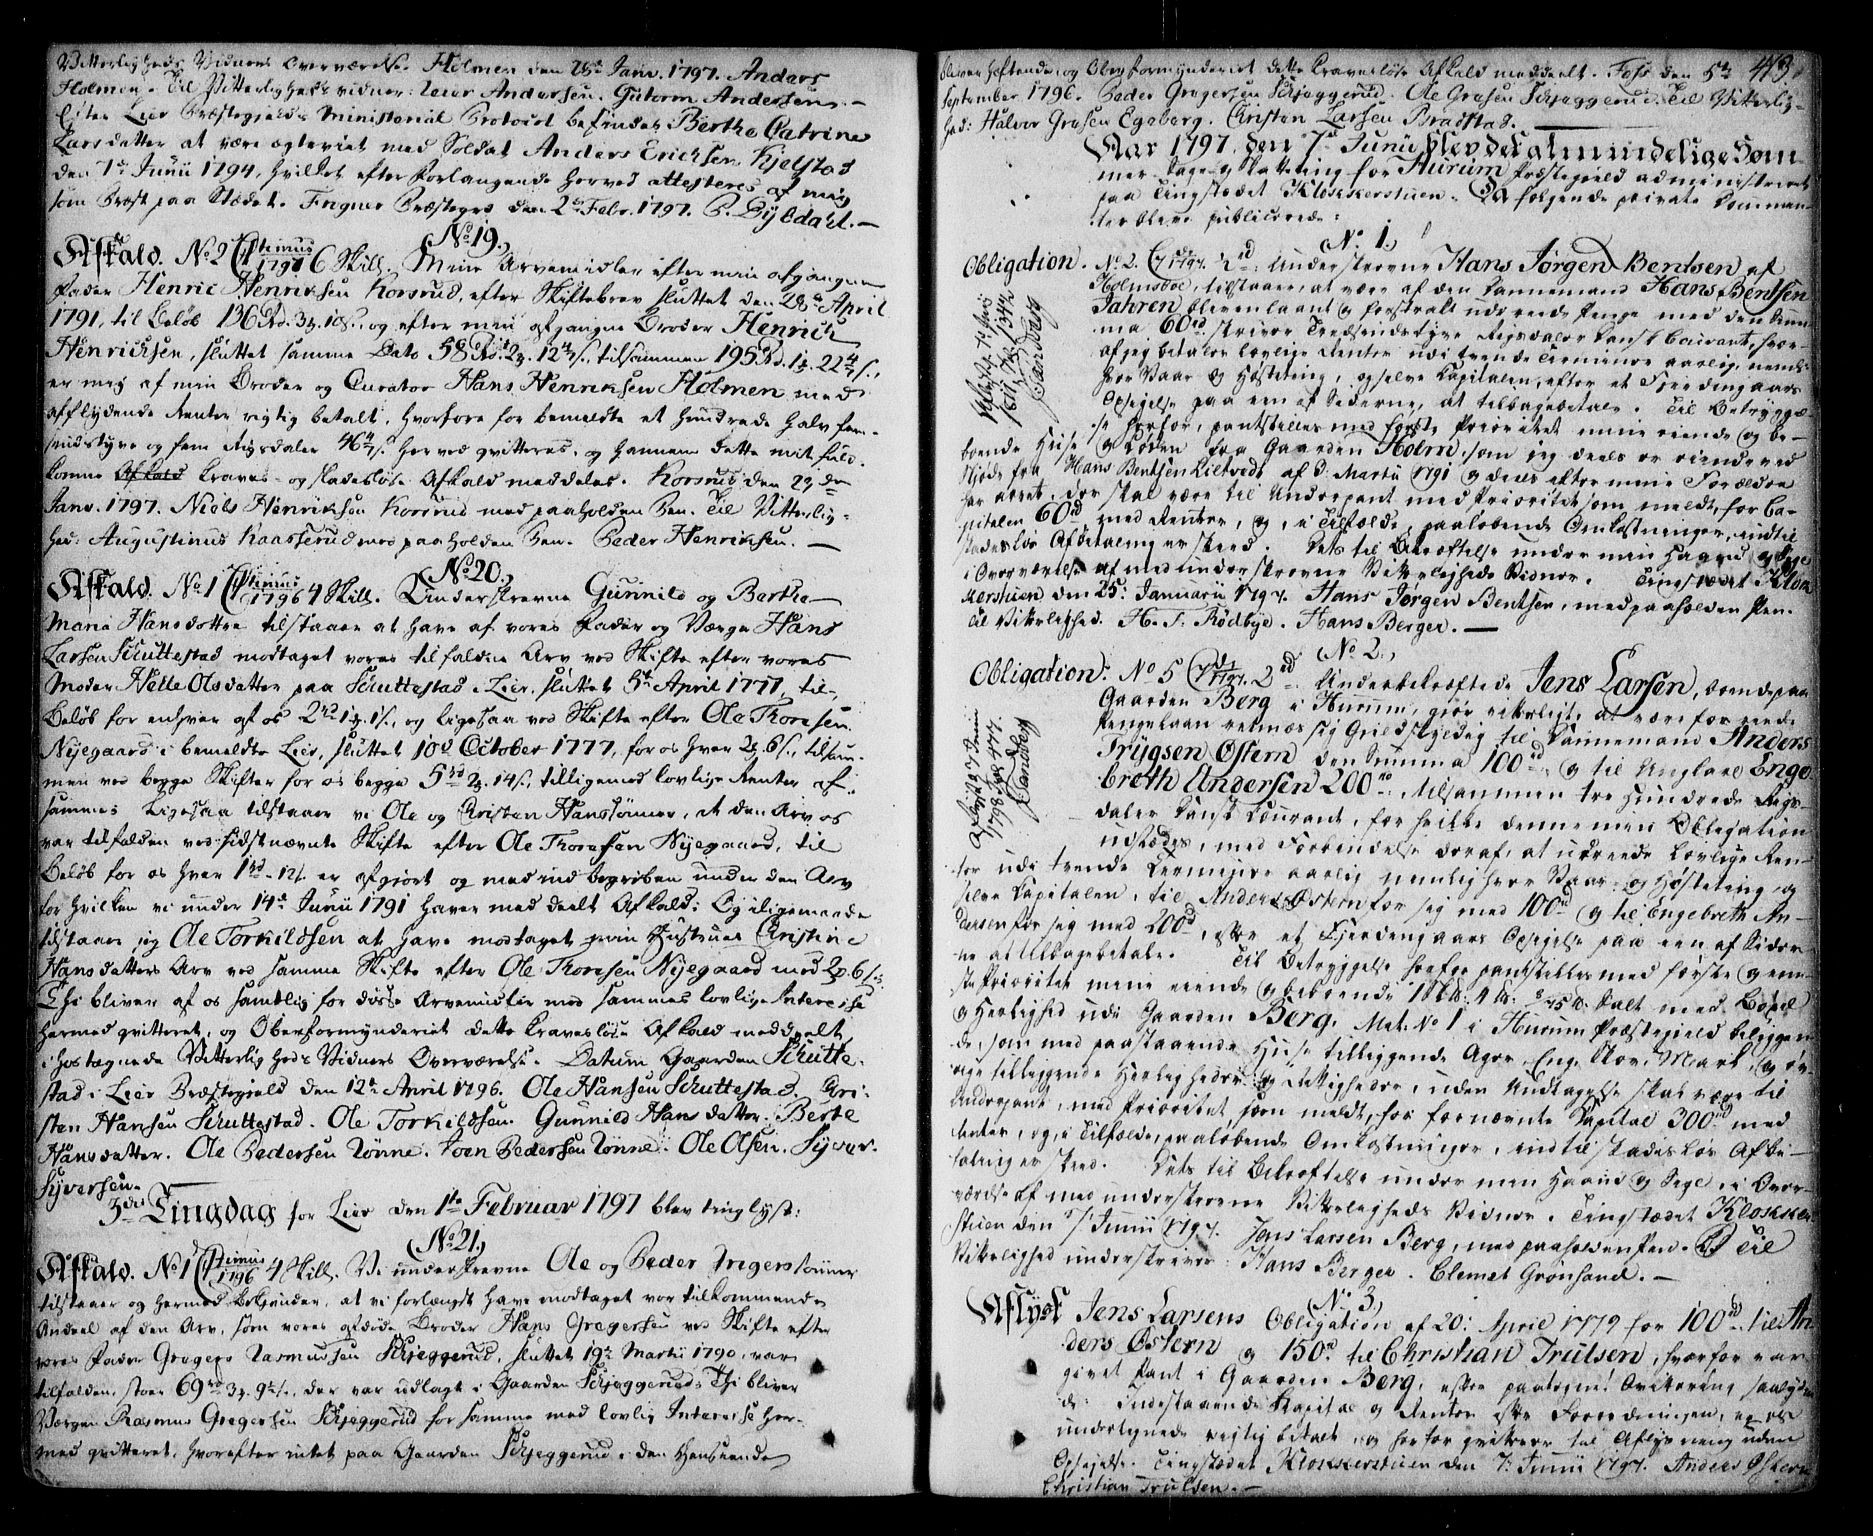 Vitterligheds Vidners Overværelse. Holmen den 28de Janv. 1797. Anders
Holmen. Til Vitterligheds vidner: Iver Andersen. Gutorm Andersen. —
Efter Lier Præstegjelds Ministerial Protocol befindes Berthe Catrine
Larsdatter at være ægteviet med Soldat Anders Ericksen Kjelstad
den 7de Junii 1794, hvilket efter Forlangende herved attesteres af mig
som Præst paa Stædet. Præstegrd den 2de Febr. 1797. P. Dybdahl. —
No 19.
Afkald. No 2 Ctimus 1796 6 Skill. Mine Arvemidler efter min afgangne
Fader Henric Henriksen Korsrud, efter Skiftebrev sluttet den 28de April
1791, til Beløb 136 Rd. 3 10 s., og efter min afgangne Broder Henrich
Henricksen, sluttet samme Dato 58 Rd. 2 12 s., tilsammen 195 Rd. 1 22 s.,
er mig af min Broder og Curator Hans Henriksen Holmen med
afflydende Renter rigtig betalt, hvorfore for bemeldte et hundrede halv fem-
sindstyve og fem Rigsdaler 46 s. herved qvitteres, og hannem dette mit fuld-
komne Afkald kraves- og skadesløse Afkald meddeles. Korsrud den 29de
Janv. 1797. Niels Henriksen Korsrud med paaholden Pen. Til Vitterlig-
hed: Augustinus Kaasserud med paaholden Pen. Peder Henriksen. —
No 20.
Afkald. No 1 Ctimus 1796 4 Skill. Underskrevne Gunnild og Berthe
Maria Hansdøttre tilstaaer at have af vores Fader og Værge Hans
Larsen Schuttestad modtaget vores tilfaldne Arv ved Skifte efter vores
Moder Helle Olsdatter paa Schuttestad i Lier, sluttet 5te April 1771, til
Beløb for enhver af os 2 rd 1 1 s., og ligesaa ved Skifte efter Ole Thoresen
Nyegaard i bemeldte Lier, sluttet 10d October 1777, for os hver 2 6 s., tilsam-
men ved begge Skifter for os begge 5 rd 2 14 s., tilligemed lovlige Renter af
sammes. Ligesaa tilstaaer vi Ole og Christen Hanssønner, at den Arv os
var tilfalden ved sidstnævnte Skifte efter Ole Thoresen Nyegaard, til
Beløb for os hver 1 rd - 12 s. er afgjort og med indbegreben under den Arv
for hvilken vi under 14de Junii 1791 haver meddeelt Afkald: Og iligemaade
tilstaaer jeg Ole Torkildsen at have modtaget min Hustrues Christine
Hansdatters Arv ved samme Skifte efter Ole Thoresen Nyegaard med 2 6 s.:
Thi bliver af os samtlig for disse Arvemidler med sammes lovlige Interesse
hermed qvitteret, og Oberformynderiet dette kravesløse Afkald meddeelt
i hostegnede Vitterligheds Vidners Overværelse. Datum Gaarden Schutte-
stad i Lier Præstegield den 12te April 1796. Ole Hansen Schuttestad. Chri-
sten Hansen Schuttestad. Ole Torkildsen. Gunnild Hans datter. Berte
Hansdatter. Ole Pedersen Tønne. Joen Pedersen Tønne. Ole Olsen. Syver
Syversen.
3die Tingdag for Lier den 1te Februar 1797 blev tinglyst:
No 21.
Afkald. No 1 Ctimus 1796 4 Skill. Vi underskrevne Ole og Peder Gregerssønner
tilstaaer og hermed bekiender, at vi forlængst have modtaget vor tilkommende
Andeel af den Arv, som vores afdøde Broder Hans Gregersen ved Skifte efter
vores Fader Gregers Rasmussen Schjeggerud, sluttet 19de Martii 1790, var
tilfalden, stoer 69 rd 3 9 s., der var udlagt i Gaarden Schjeggerud: Thi bliver
Værgen Rasmus Gregersen Schjeggerud for samme med lovlig Interesse her-
med qvitteret, hvorefter intet paa Gaarden Schjeggerud i den Henseende
bliver heftende, og Oberformynderiet dette kravesløse Afkald meddeelt. Foss den 5te
473.
September 1796. Peder Gregersen Schjeggerud. Ole Gresen Schjeggerud. Til Vitterlig-
hed: Halvor Gresen Egeberg. Christen Larsen Bradstad.
Aar 1797. den 7de Junii blev det almindelige Som-
mer Sage- og Skatteting for Hurum Præstegield administreret
paa Tingstædet Klokkerstuen. Da følgende private Documen-
ter bleve publicerede:
No 1.
Obligation. No 2. C 1797. 2rd: Underskrevne Hans Jørgen Bentsen af
Holmsboe, tilstaaer, at være af den Dannemand Hans Bentsen
Jahren bleven laant og forstrakt udi reede Penge med den Sum-
ma 60rd skriver Tredsindstyve Rigsdaler Dansk Courant, hvor-
af jeg betaler lovlige Renter udi tvende Terminer aarlig, nemlig
hver Vaar- og Høsteting, og selve Capitalen, efter et Fjerdingaars
Opsigelse paa een af Siderne, at tilbagebetale. Til Betryggel-
se herfor, pantsættes med første Prioritet mine eiende og be-
boende Huse og Løden fra Gaarden Holm, som jeg deels er eiende ved
Skjøde fra Hans Bentsen Lillevedt af 3. Martii 1791 og deels efter mine Forældre
har arvet, der skal være til Underpant med Prioritet som meldt, for Ca-
pitalen 60rd med Renter, og, i Tilfælde, paaløbende Omkostninger, indtil
skadesløs Afbetaling er skeed. Dets til Bekræftelse under min Haand og Segl
i Overværelse af medunderskrevne Vitterligheds Vidner. Tingstædet Klok-
kerstuen den 25: Januarii 1797. Hans Jørgen Bentsen, med paaholden Pen.
Til Vitterlighed. H. F. Rødbye. Hans Berger. —
No 2.
Obligation: No 5 C 1797. 2rd Underbekræftede Jens Larsen, boende paa
Gaarden Berg i Hurum, giør vitterligt, at være for reede
Pengelaan retmæssig Gield skyldig til Dannemand Anders
Trygsen Østern den Summa 100rd, og til Unglare Enge-
breth Andersen 200rd, tilsammen tre hundrede Rigs-
daler Dansk Courant, for hvilke denne min Obligation
udstædes, med Forbindelse deraf, at udreede lovlige Ren-
ter udi tvende Terminer aarlig nemlig hver Vaar- og Høsteting og
selve Capitalen, til Anders Østern for sig med 100rd og til Engebreth An-
dersen for sig med 200rd, efter et Fjerdingaars Opsigelse paa een af Sider-
ne at tilbagebetale. Til Betryggelse herfor pantstilles med første og eene-
ste Prioritet mine eiende og beboende Salt med Bøxel
og Herlighed udi Gaarden Berg, Mat: No 1 i Hurum Præstegield beliggen-
de, som med paastaaende Huse tilliggende Ager, Eng, Skov, Mark, og øv-
rige tilliggende Herligheder og Rettigheder, uden Undtagelse skal være til
Underpant, med Prioritet som meldt, for fornævnte Capital 300rd med
Renter, og, i Tilfælde, paaløbende Omkostninger, indtil skadesløs Afbe-
taling er skeed. Dets til Bekræftelse under min Haand og Segl, i Over-
værelse af medunderskrevne Vitterligheds Vidner. Tingstædet Klokker-
stuen den 7 Junii 1797. Jens Larsen Berg, med paaholden Pen. Til
Vitterlighed underskriver: Hans Berger. Clemet Grønsand. —
No 3.
Aflyst Jens Larsens Obligation af 20: April 1779 for 100rd. til An-
ders Østern og 150rd til Christian Trulsen, hvorfor var
givet Pant i Gaarden Berg, efter paategnet Qvittering saalyden-
de: Indestaaende Capital og Renter efter Forordningen, er os
undertegnede rigtig betalt og herfor qvitterer til Aflysning uden
Opsigelse. Tingstædet Klokkerstuen den 7: Junii 1797. Anders Østern
Christian Trulsen. —